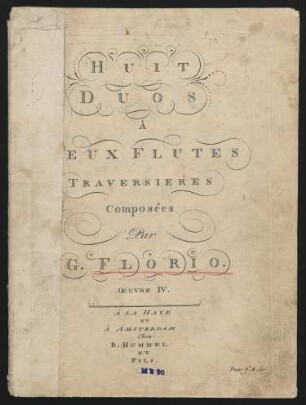 HUIT
DUOS
À
EUX FLUTES
TRAVERSIERES
Composées
Par
G. FLORIO.
ŒUVRE IV.
À LA HAYE
ET
À AMSTERDAM
Chez
B. HUMMEL
ET
FILS.